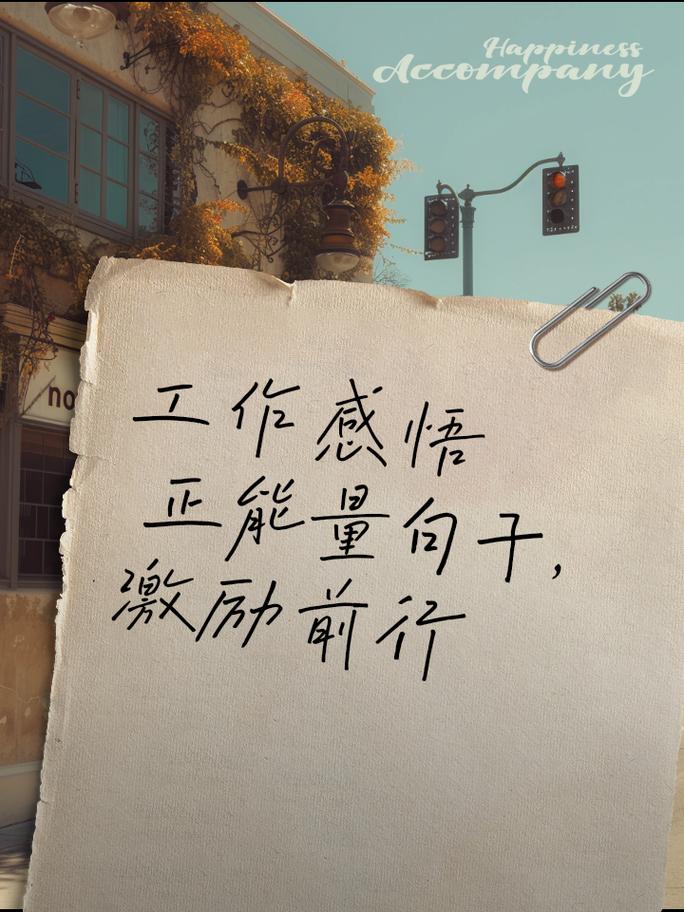 Happiness
Accompany
no
工作感悟
正能量句子,
激励前行